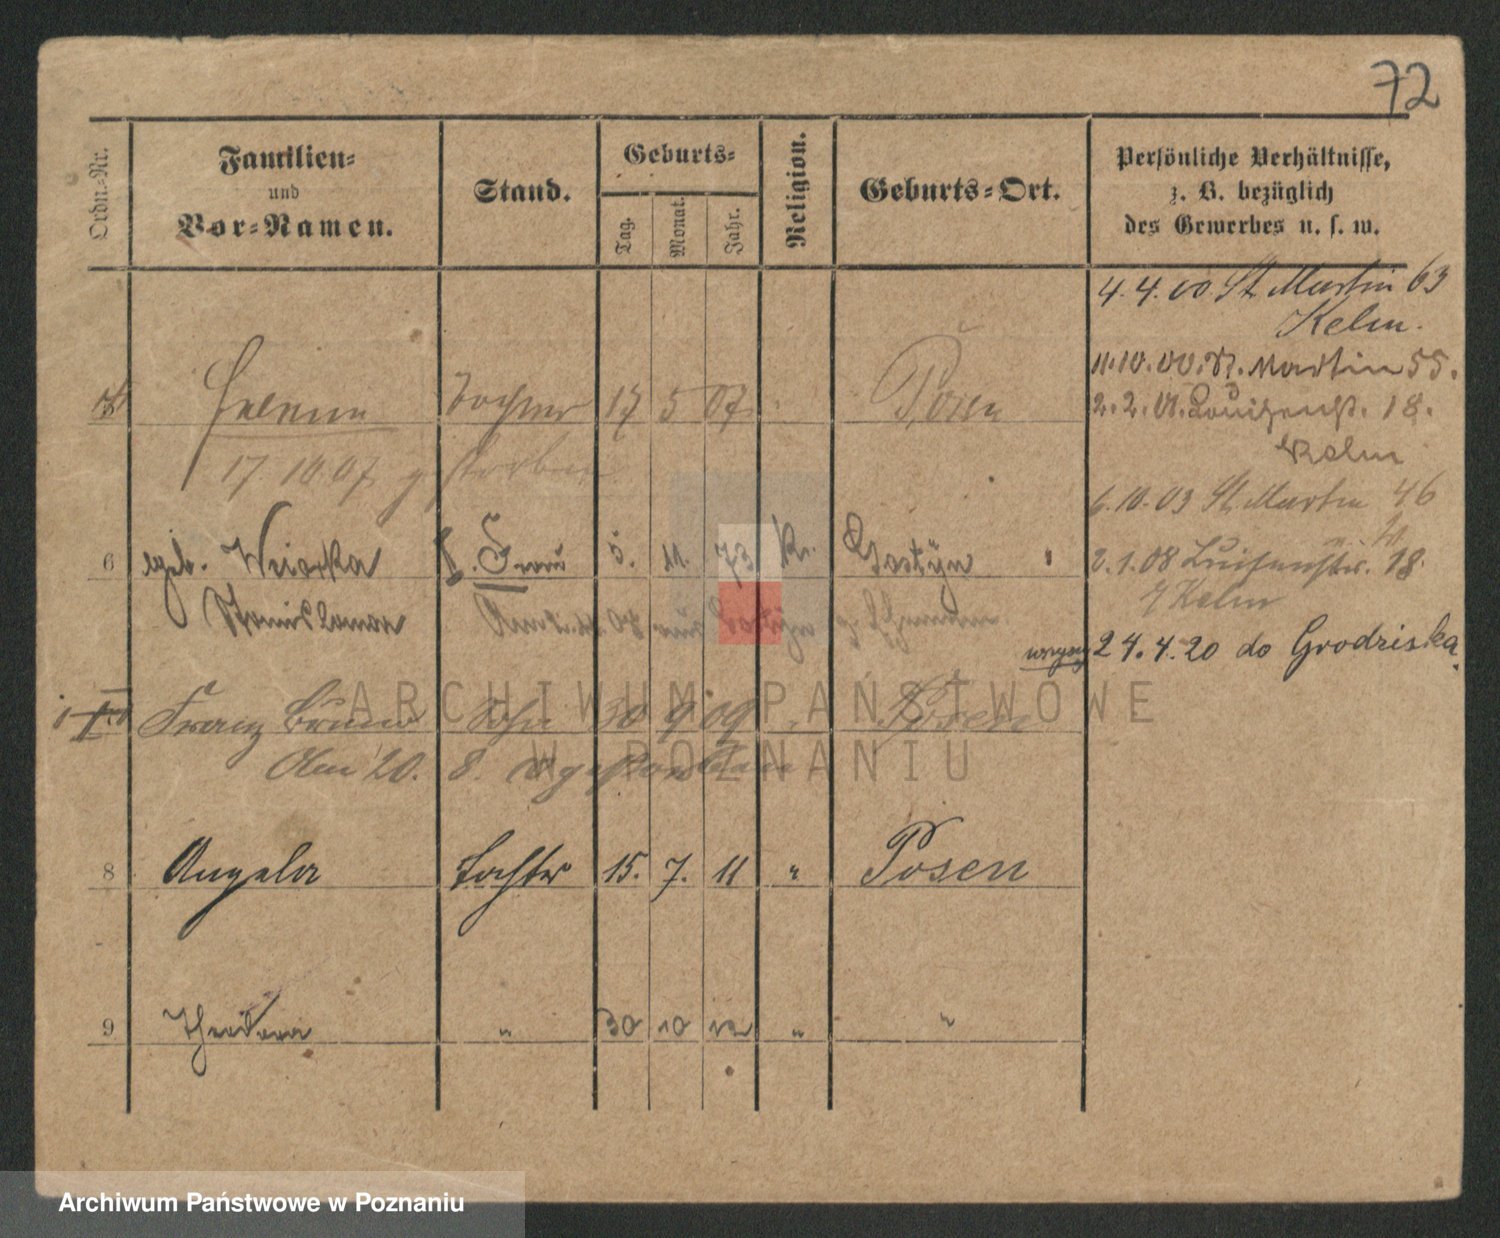 72
Ordn.-Nr.
Familien-
und
Vor-Namen.
Stand.
Geburts-
Tag.
Monat.
Jahr.
Religion.
Geburts-Ort.
Persönliche Verhältnisse,
z. B. bezüglich
des Gewerbes u. s. w.
4.4.00 St Martin 63
Kelm.
11.10.00. St. Martin 55.
Tochter 17 5 07 Posen
2.2.01. Louisenst. 18.
Kelm
17.10.07 gestorben
6.10.03 St. Martin 46
6 geb. Wiorka Frau 5. 11. 73 K. Gostyn
2.1.08 Luisenstr. 18.
Kelm
Stanislawa
24.4.20 do Grodziska
Franz Bruno Sohn 30 9 09 " Posen
Am 20. 8. gestorben
8 Angela Tochter 15. 7. 11 " Posen
9 Theodora " 30 10 12 " "
ARCHIWUM PAŃSTWOWE
W POZNANIU
Archiwum Państwowe w Poznaniu